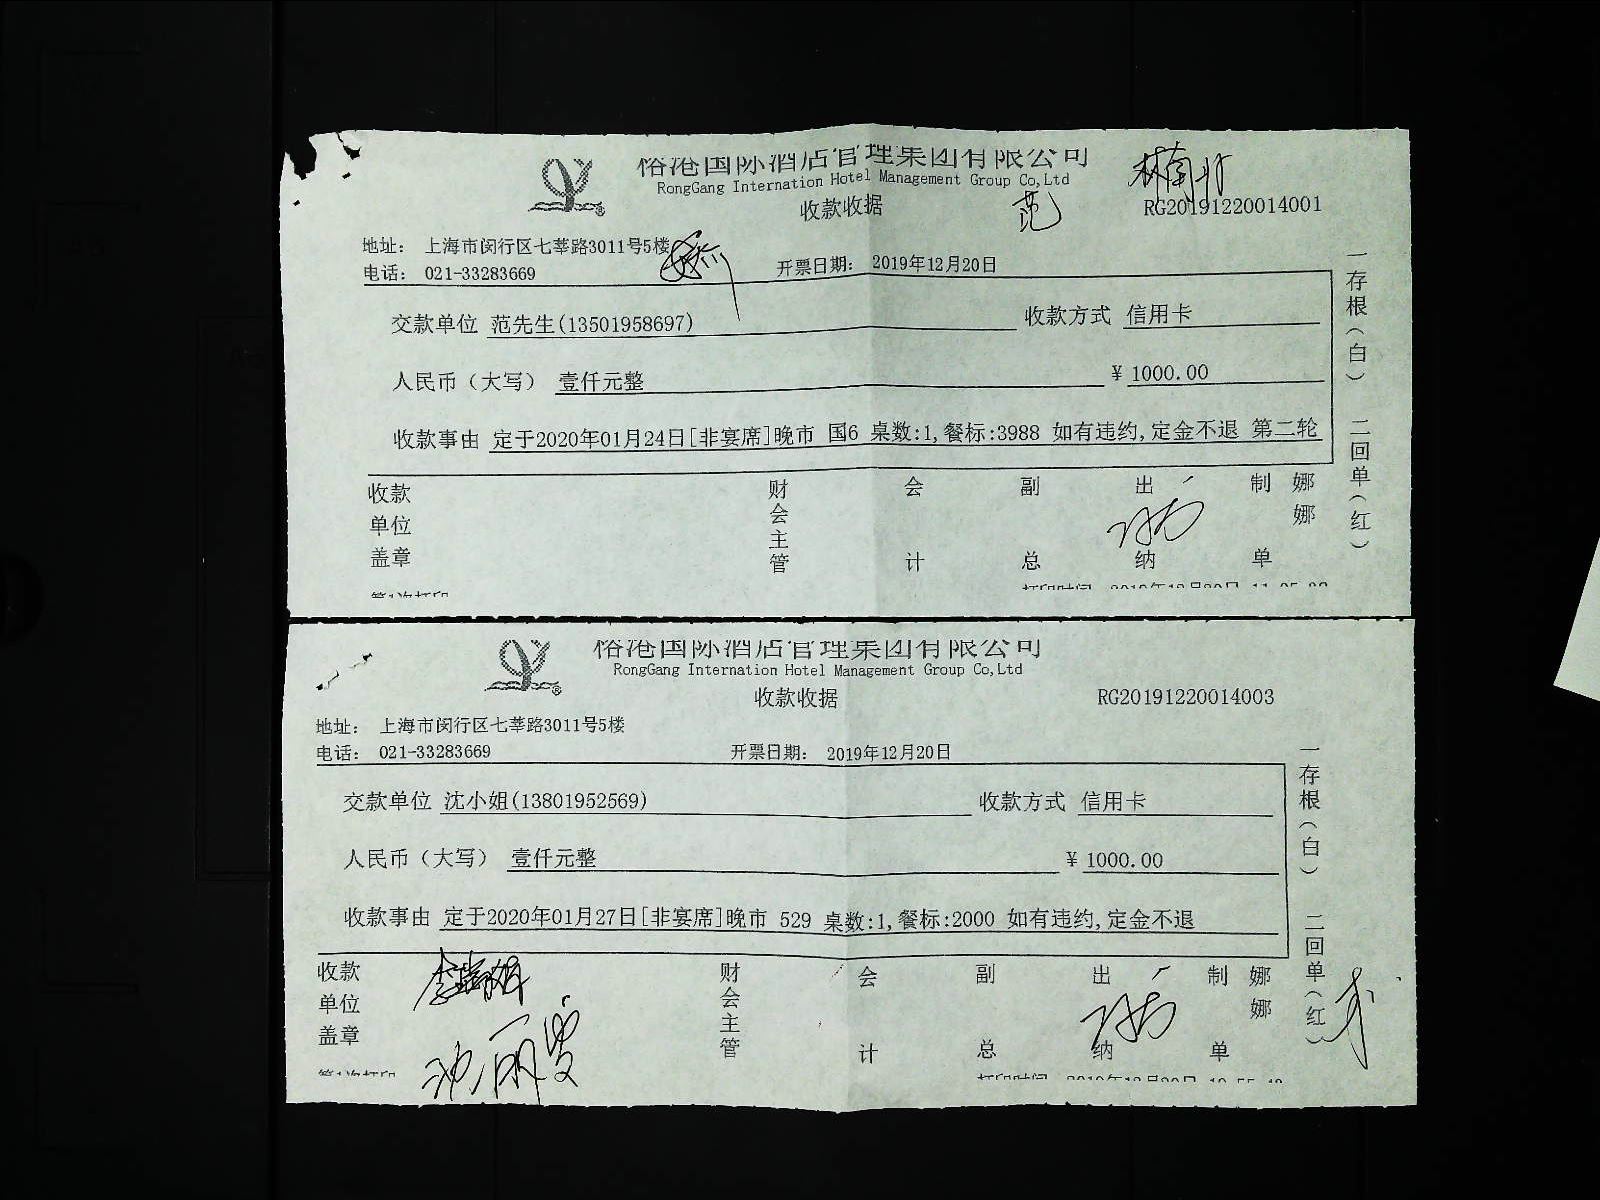 裕港国际酒店管理集团有限公司
RongGang Internation Hotel Management Group Co,Ltd
收款收据
范
林南北
RG20191220014001
地址: 上海市闵行区七莘路3011号5楼
电话: 021-33283669
开票日期: 2019年12月20日
交款单位 范先生(13501958697) 收款方式 信用卡
人民币（大写） 壹仟元整 ¥ 1000.00
收款事由 定于2020年01月24日[非宴席]晚市 国6 桌数:1,餐标:3988 如有违约,定金不退 第二轮
收款单位盖章 财会主管 会计 副总 出纳 制单 娜娜
一存根(白) 二回单(红)
第1次打印
打印时间 2019年12月20日
裕港国际酒店管理集团有限公司
RongGang Internation Hotel Management Group Co,Ltd
收款收据
RG20191220014003
地址: 上海市闵行区七莘路3011号5楼
电话: 021-33283669
开票日期: 2019年12月20日
交款单位 沈小姐(13801952569) 收款方式 信用卡
人民币（大写） 壹仟元整 ¥ 1000.00
收款事由 定于2020年01月27日[非宴席]晚市 529 桌数:1,餐标:2000 如有违约,定金不退
收款单位盖章 财会主管 会计 副总 出纳 制单 娜娜
一存根(白) 二回单(红)
第1次打印
打印时间 2019年12月20日